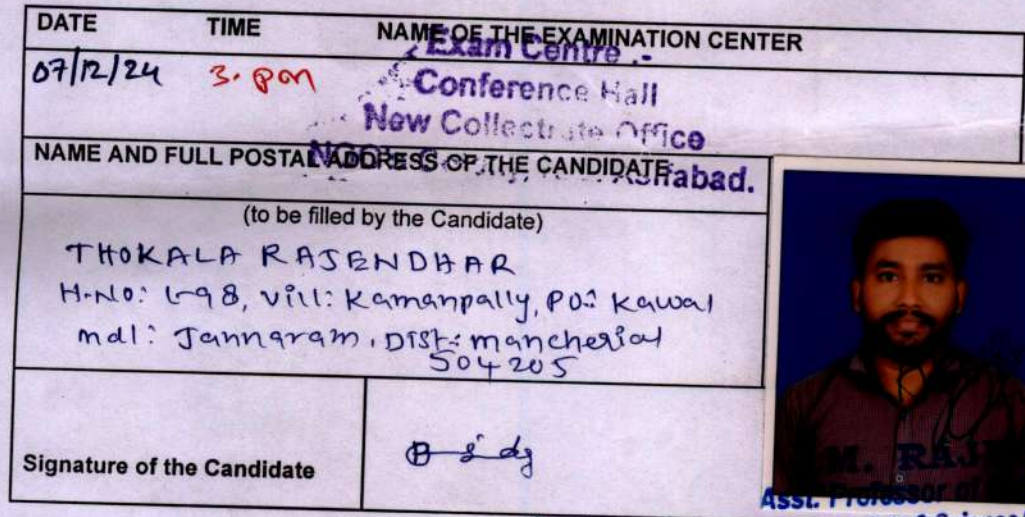 DATE TIME NAME OF THE EXAMINATION CENTER
07/12/24 3. pm
Exam Centre :-
Conference Hall
New Collectrate Office
NAME AND FULL POSTAL ADDRESS OF THE CANDIDATE
abad.
(to be filled by the Candidate)
THOKALA RAJENDHAR
H.No: 1-98, vill: Kamanpally, PO: Kawal
mdl: Jannaram, Dist: mancherial
504205
Signature of the Candidate
M. RAJ
Asst. Professor of